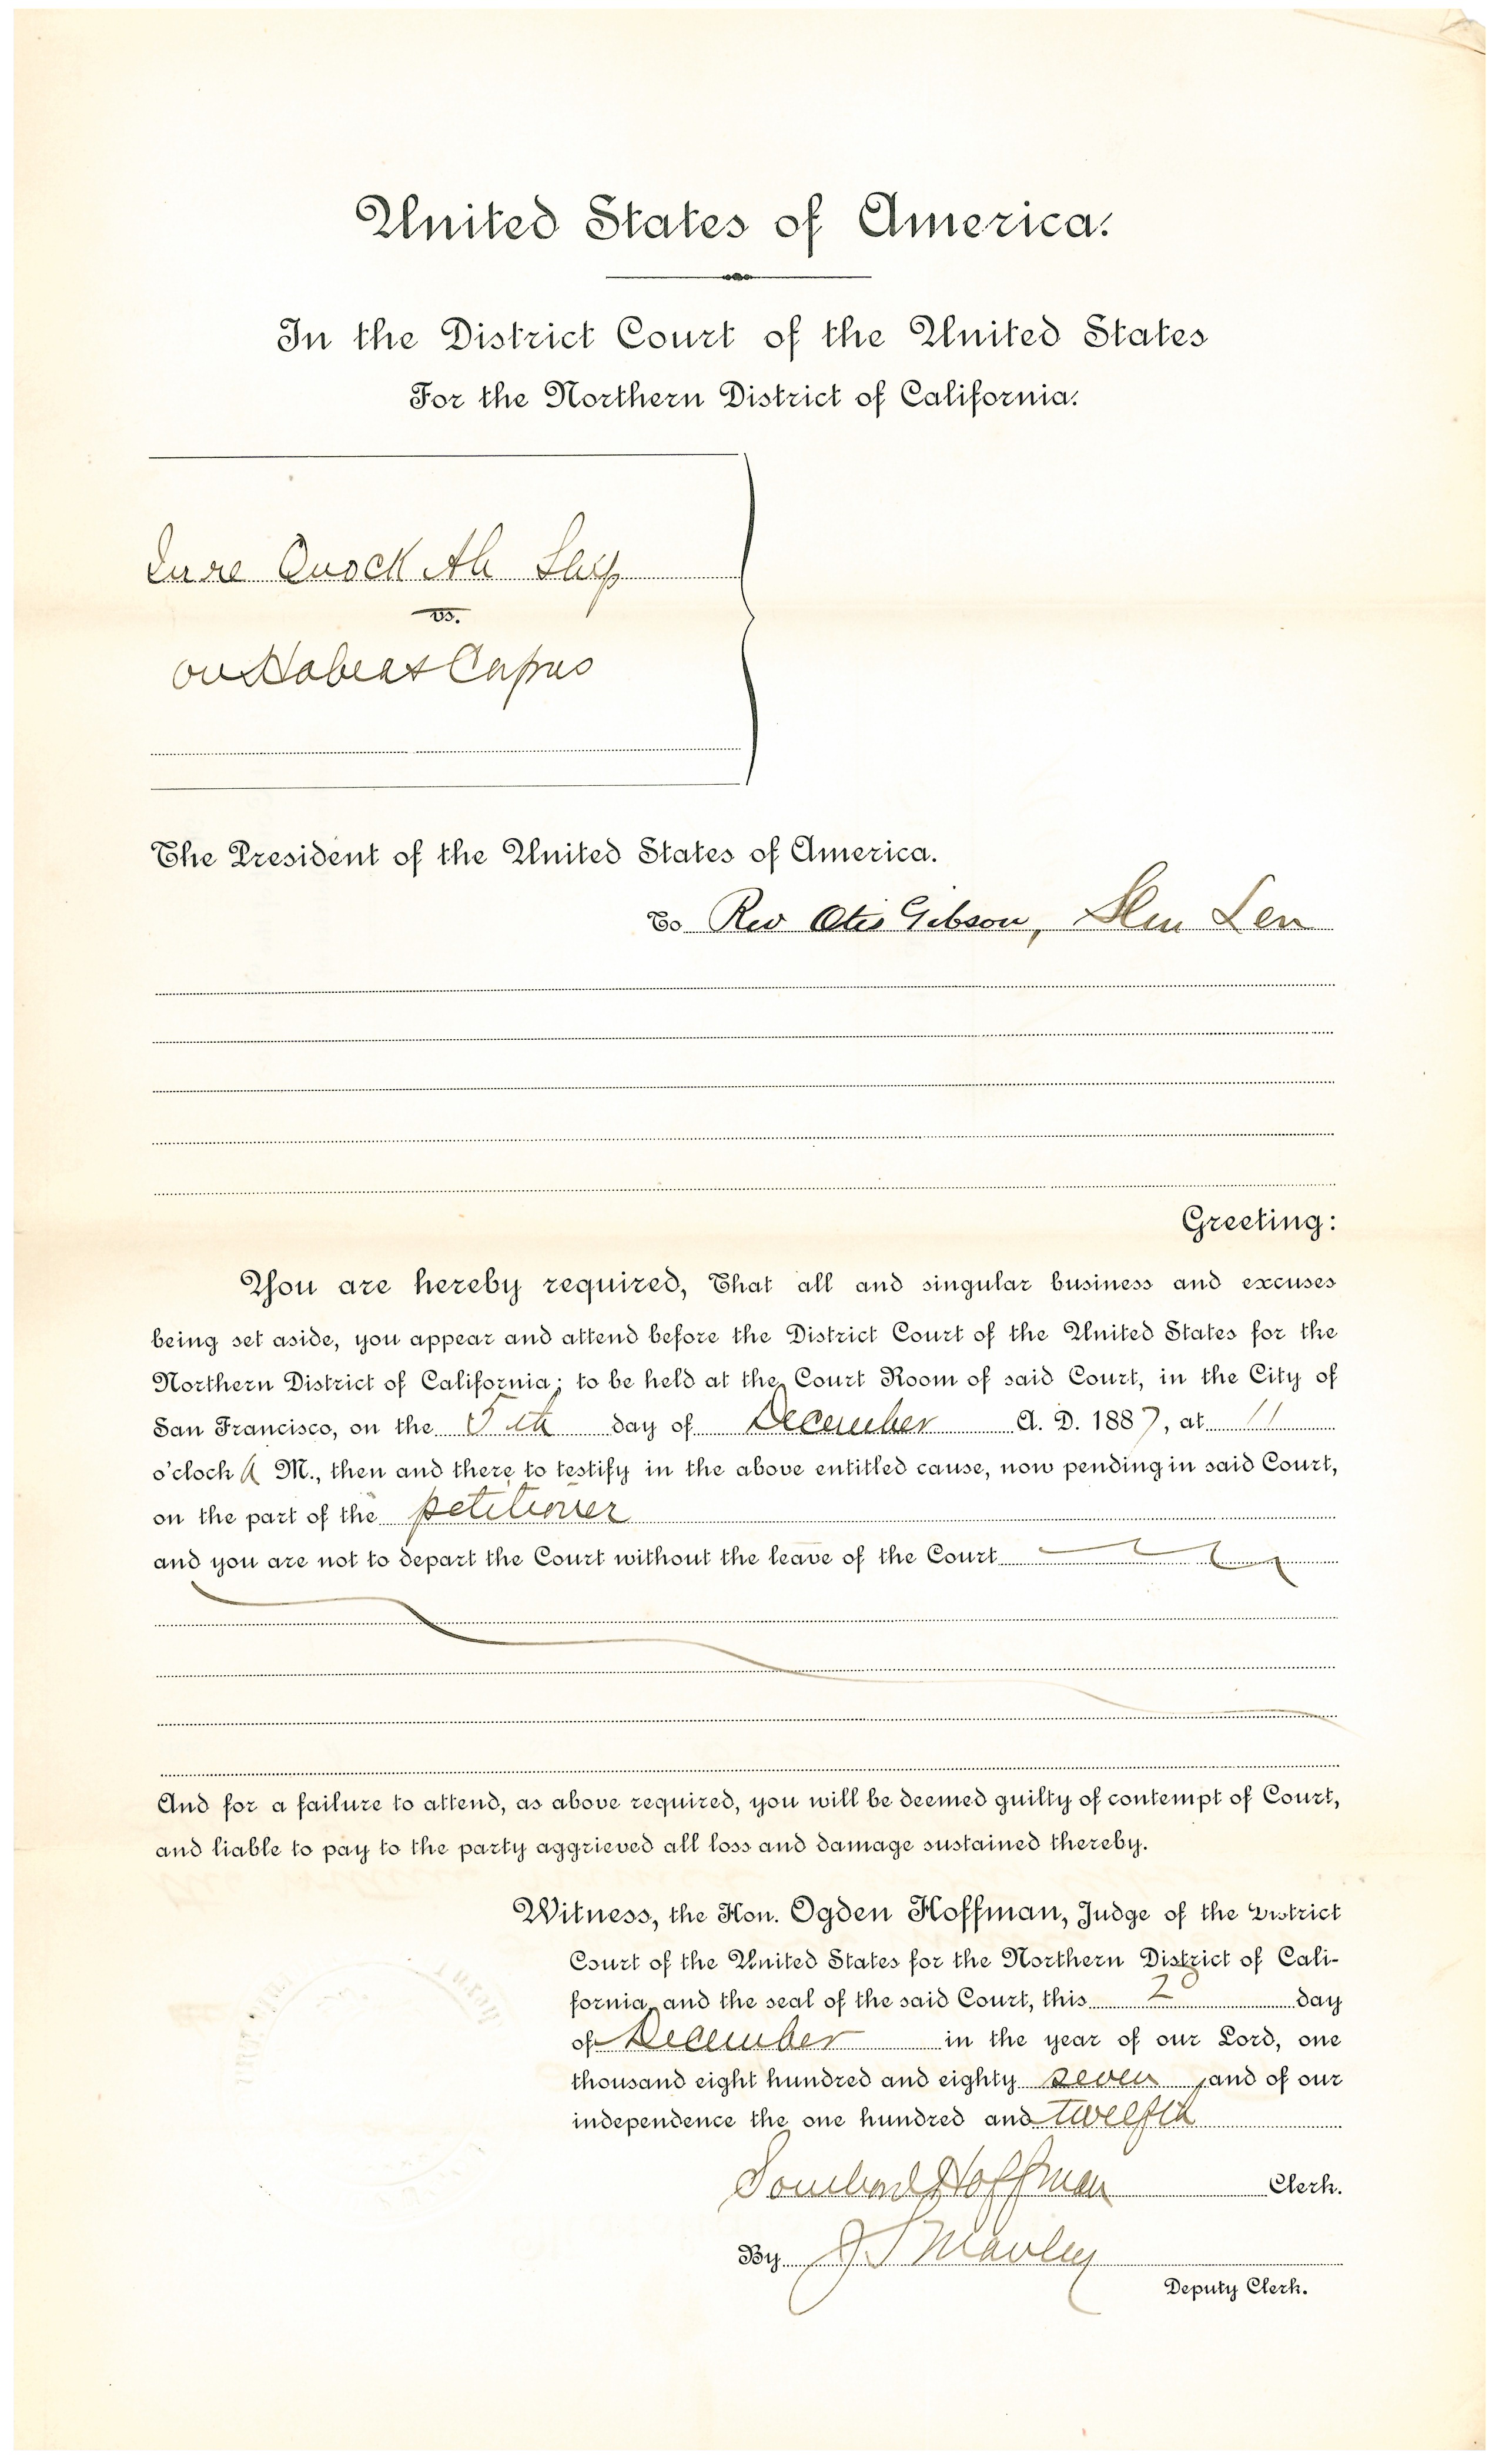 United States of America.
In the District Court of the United States
For the Northern District of California.
In re Quock Ah
vs.
on Habeas Corpus
The President of the United States of America.
To Rev Otis Gibson,
Greeting:
You are hereby required, That all and singular business and excuses
being set aside, you appear and attend before the District Court of the United States for the
Northern District of California; to be held at the Court Room of said Court, in the City of
San Francisco, on the 5th day of December A. D. 1887, at 11
o'clock A M., then and there to testify in the above entitled cause, now pending in said Court,
on the part of the petitioner
and you are not to depart the Court without the leave of the Court
And for a failure to attend, as above required, you will be deemed guilty of contempt of Court,
and liable to pay to the party aggrieved all loss and damage sustained thereby.
Witness, the Hon. Ogden Hoffman, Judge of the District
Court of the United States for the Northern District of Cali-
fornia, and the seal of the said Court, this 2d day
of December in the year of our Lord, one
thousand eight hundred and eighty seven, and of our
independence the one hundred and twelfth
Southard Hoffman Clerk.
By J S Manley
Deputy Clerk.